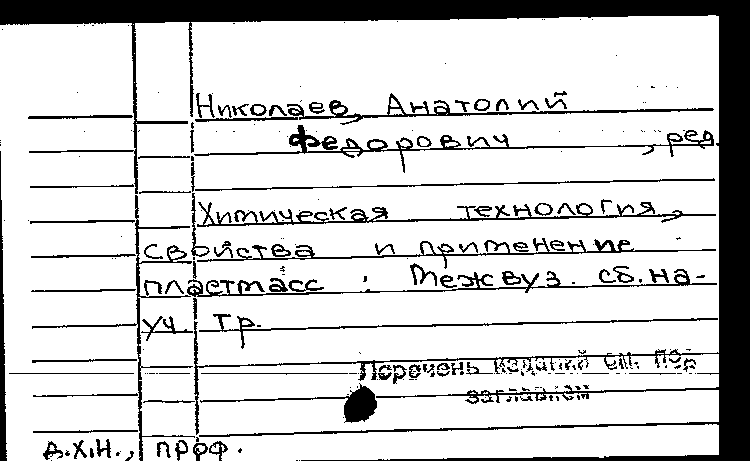 Николаев, Анатолий
Федорович , ред.
Химическая технология,
свойства и применение
пластмасс : Межвуз. сб. на-
уч. тр.
Перечень изданий см. под
заглавием
д.х.н., проф.